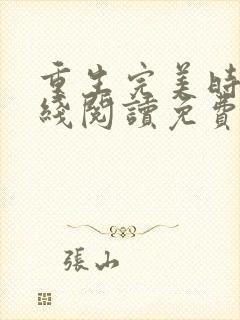 重生完美時
綫閱讀免費
張山